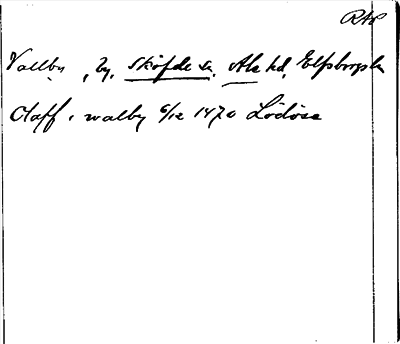 RAP
Vallby, by, Sköfde sn. Ale hd, Elfsborgs l.
Olaff i walby 6/12 1470 Lödöse